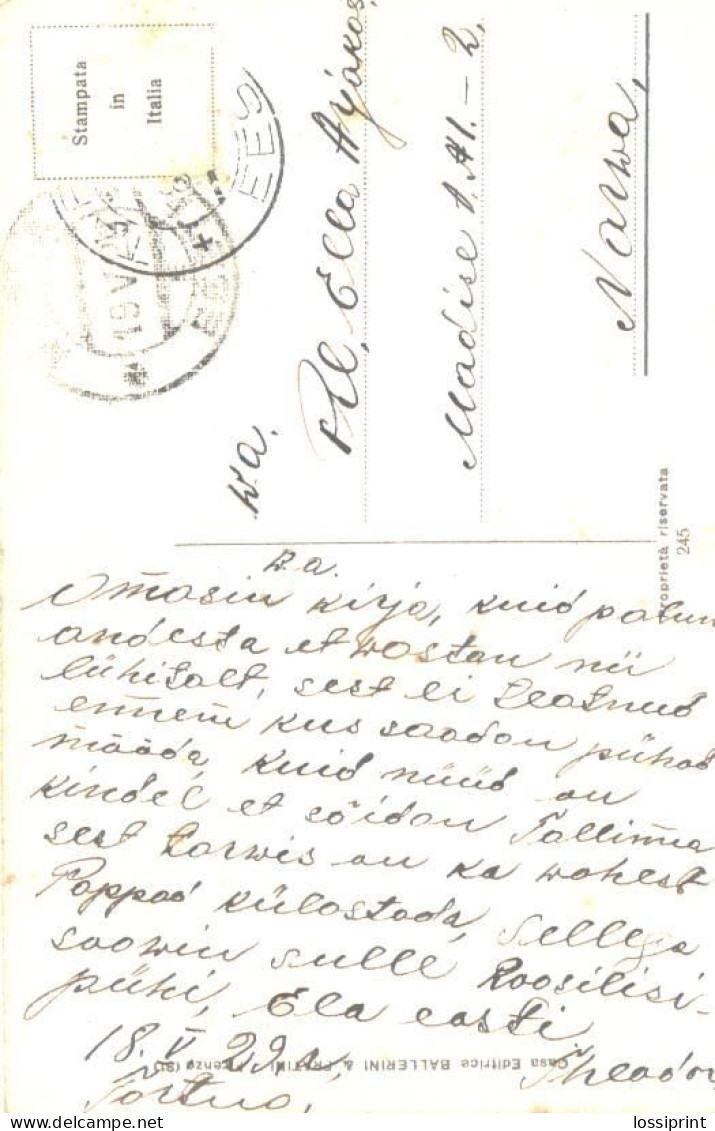 Stampata
in
Italia
19 V
EESTI
W. A.
Prl. Ella Ajakos,
Madise t. A1.-2.
Narwa,
Proprietà riservata
245
W. a.
Omasin kirja, kuid palun
andesta et wastan nii
lühitalt, sest ei teatnud
ennem kus saadan pühad
mööda, kuid nüüd on
kindel et sõidan Tallinna
sest tarwis on ka wahest
Pappad külastada, sellega
soowin sulle Roosilisi-
pühi, Ela hästi
18. V 29 a. Theodor
Tartus.
Casa Editrice BALLERINI & FRATINI
lossiprint